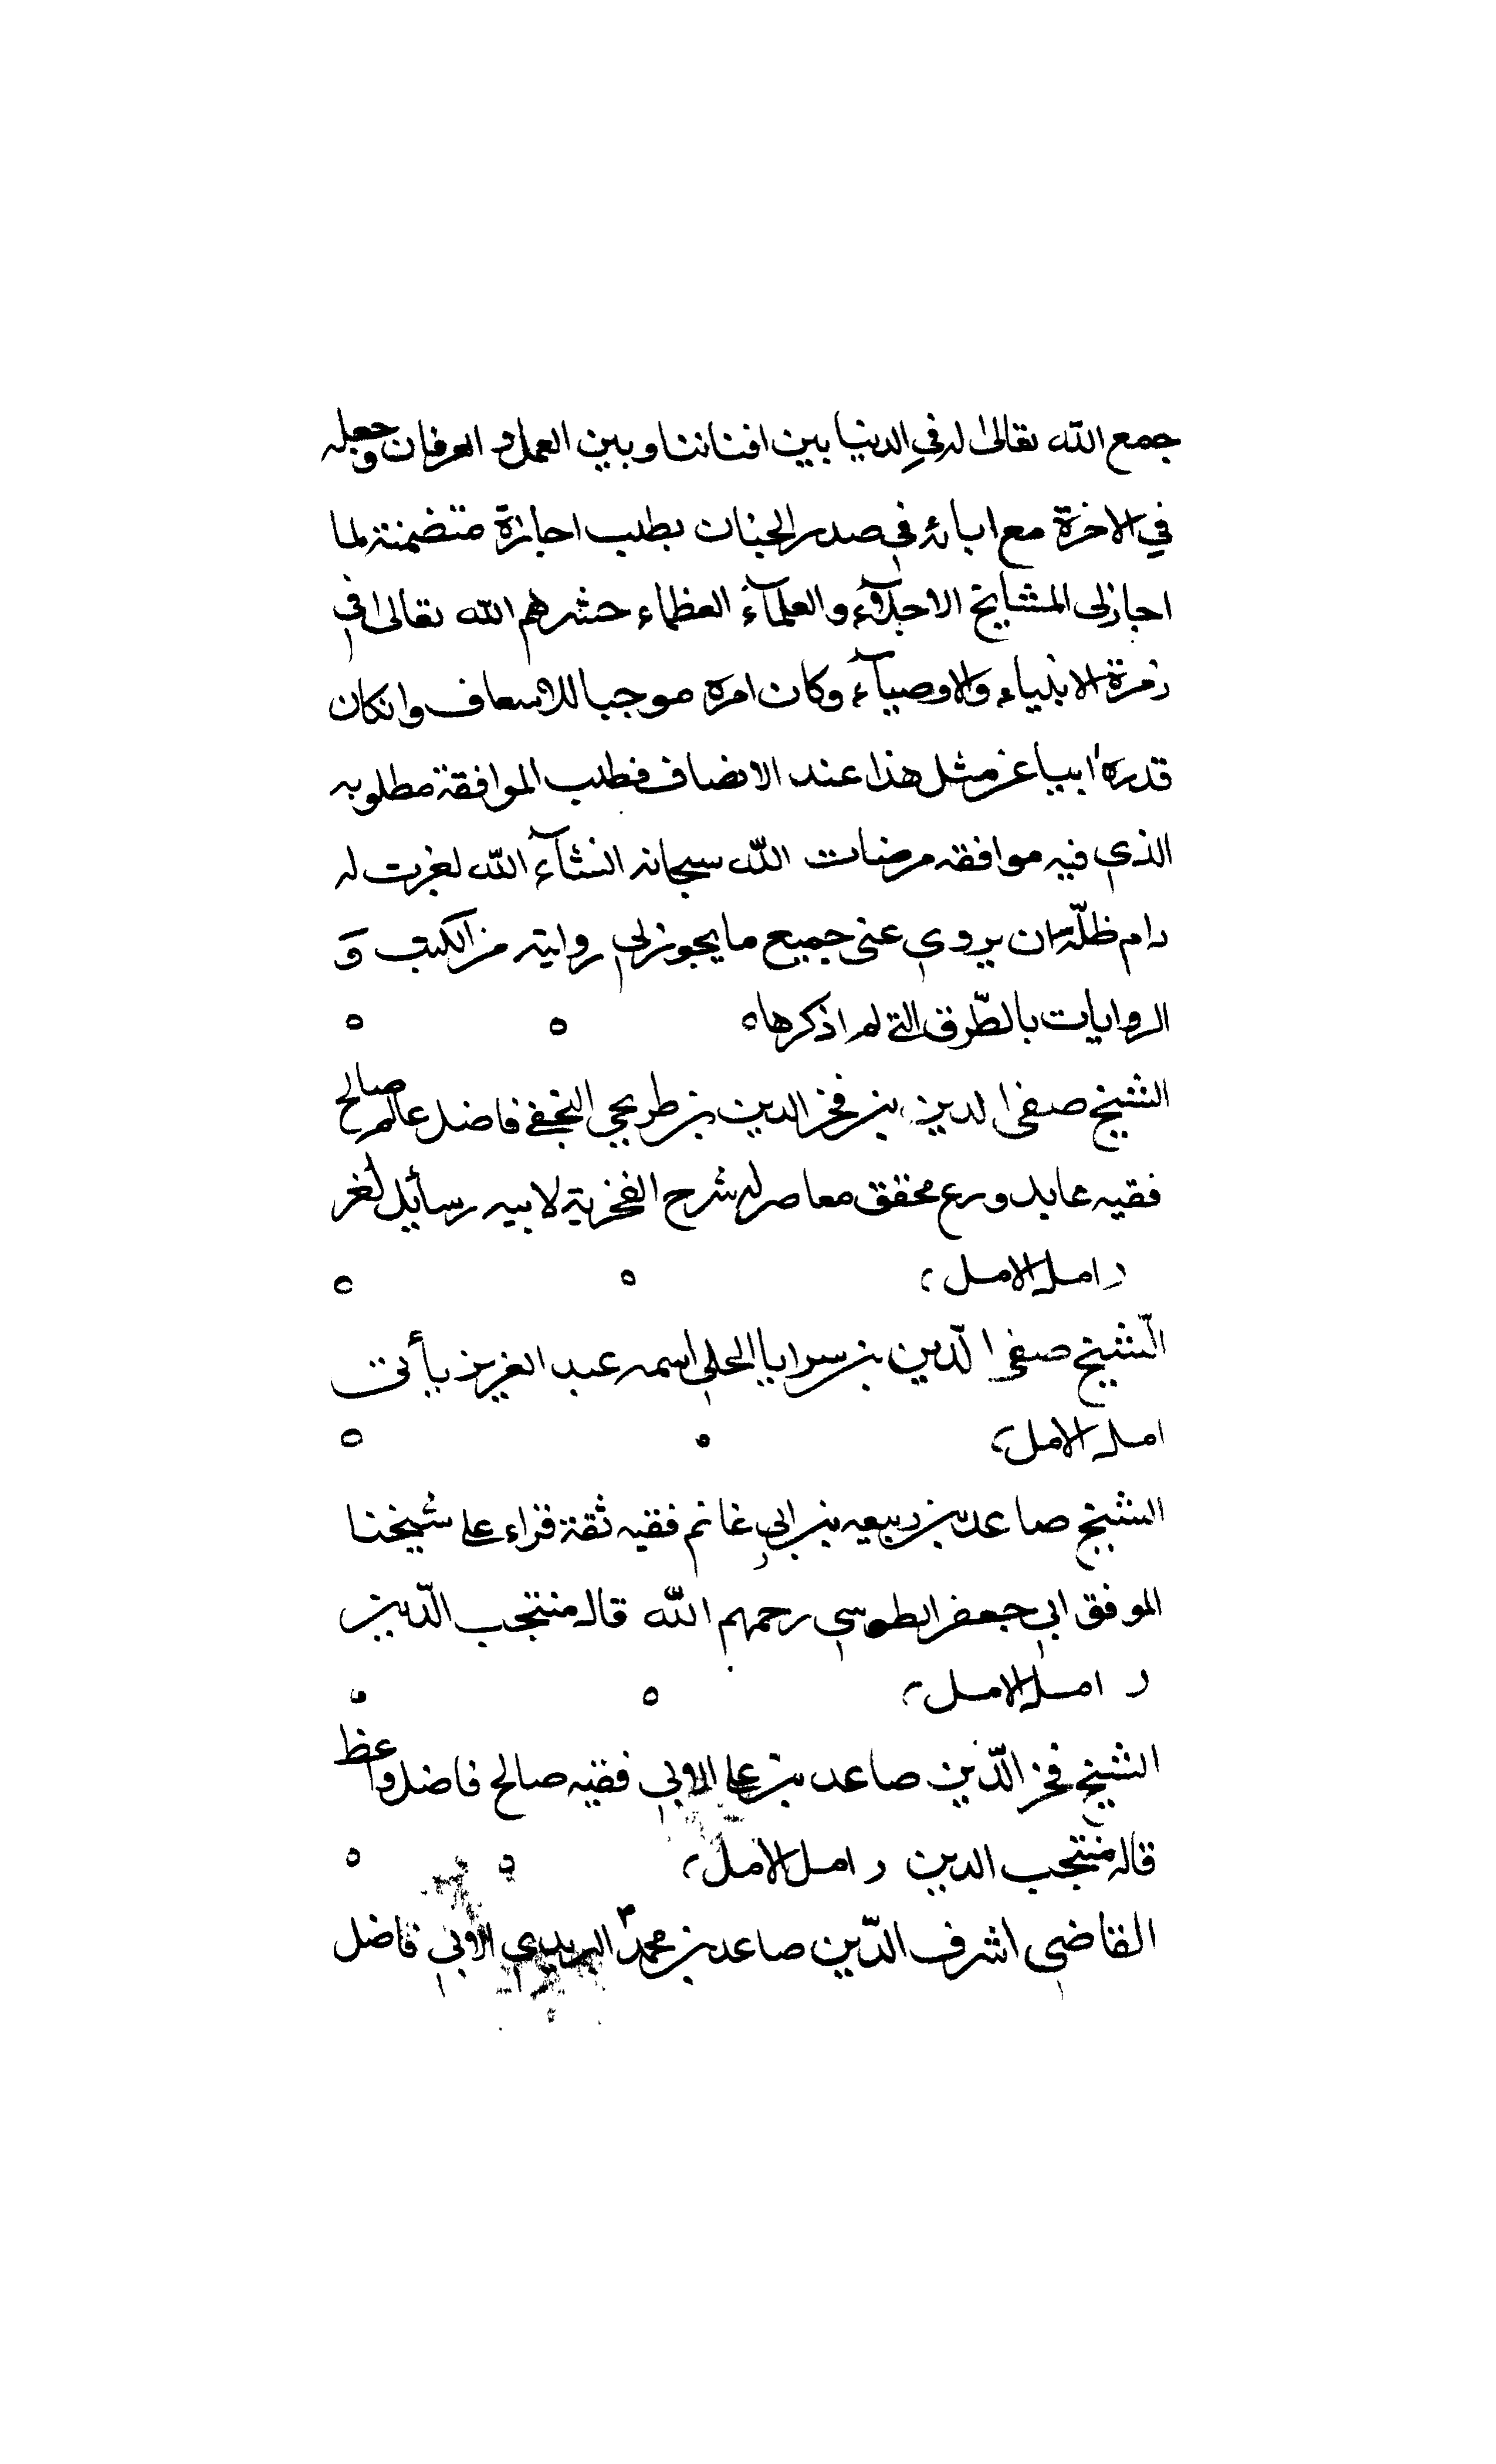 جمع الله تعالى له في الدنيا بين افناننا وبين العمل و العرفان وجعله
في الاخرة مع ابائه في صدر الجنان بطلب اجازة متضمنة لما
اجاز لى المشايخ الاجلاء والعلمآء العظماء حشرهم الله تعالى في
زمرة الانبياء والاوصيآء وكان امره موجبا للاسعاف وانكان
قدره ابيا عن مثل هذا عند الانصاف فطلب الموافقة مطلوبه
الذى فيه موافقه مرضات الله سبحانه انشآء الله لغرت له
دام ظلّه ان يروى عنى جميع ما يجوز لى روايته من الكتب و
الروايات بالطّرق التي لم اذكرها
الشيخ صفى الدين بن فخر الدين بن طريحى النجفى فاضل عالم صالح
فقيه عابد ورع محقق معاصر له شرح الفخرية لابيه رسائل اخر
ر امل الامل
الشيخ صفى الدّين بن سرايا الحلى اسمه عبد العزيز يأتى
امل الامل
الشيخ صاعد بن ربيعه بن ابى غانم فقيه ثقة قراء على شيخنا
الموفق ابى جعفر الطوسى رحمهم الله قاله منتجب الدّين
ر امل الامل
الشيخ فخر الدّين صاعد بن على الاوبى فقيه صالح فاضل واعظ
قاله منتجب الدين ر امل الامل
القاضى اشرف الدّين صاعد بن محمد البريدى الاوبى فاضل